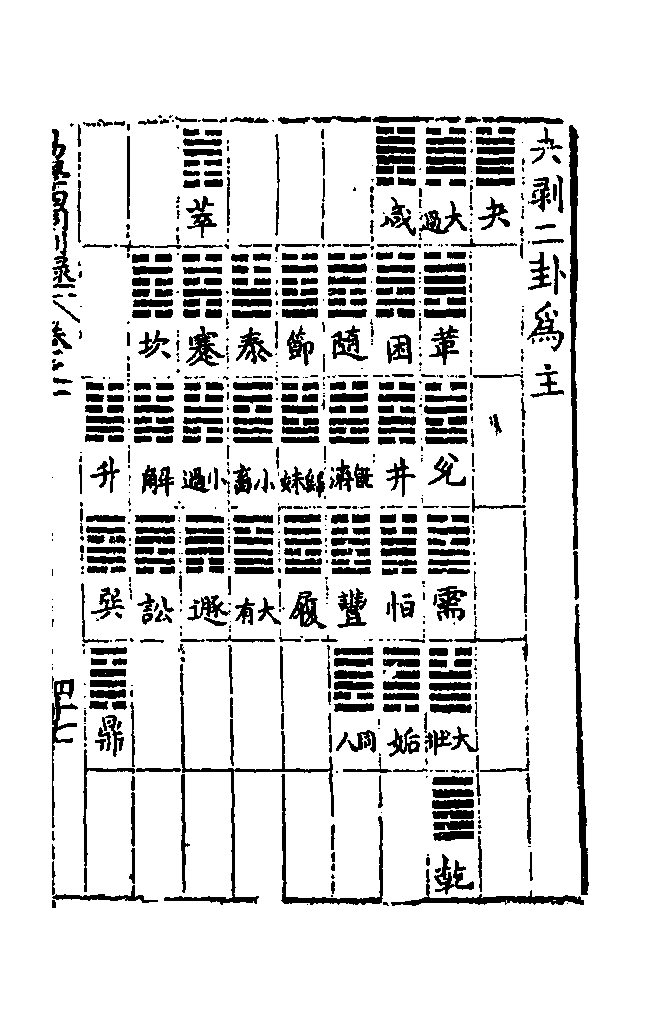 夬剥二卦為主
夬
大過
革
兌
需
大壯
乾
咸
困
井
恒
姤
隨
既濟
豐
同人
節
歸妹
履
泰
小畜
大有
萃
蹇
小過
遯
坎
解
訟
升
巽
鼎
四十七